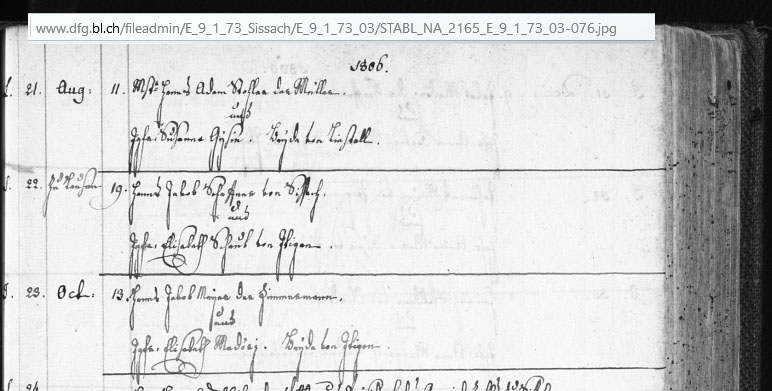 www.dfg.bl.ch/fileadmin/E_9_1_73_Sissach/E_9_1_73_03/STABL_NA_2165_E_9_1_73_03-076.jpg
1806.
21. Aug: 11. Mstr. Hanns Adam Stohler der Müller.
und
Jgfr: Susanna Gysin. Beyde von Liestall.
22. Zu Lausen 19. Hanns Jakob Schaffner von Sissach
und
Jgfr: Elisabeth Schaub von Itigen.
23. Oct: 13. Hanns Jakob Meyer der Zimmermann.
und
Jgfr: Elisabeth Madöri. Beyde von Itigen.
24.